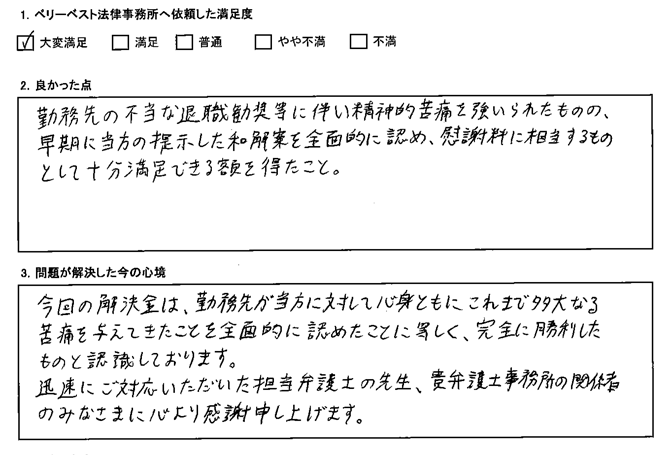 1. ベリーベスト法律事務所へ依頼した満足度
☑ 大変満足 □ 満足 □ 普通 □ やや不満 □ 不満
2. 良かった点
勤務先の不当な退職勧奨等に伴い精神的苦痛を強いられたものの、
早期に当方の提示した和解案を全面的に認め、慰謝料に相当するもの
として十分満足できる額を得たこと。
3. 問題が解決した今の心境
今回の解決金は、勤務先が当方に対して心身ともにこれまで多大なる
苦痛を与えてきたことを全面的に認めたことに等しく、完全に勝利した
ものと認識しております。
迅速にご対応いただいた担当弁護士の先生、貴弁護士事務所の関係者
のみなさまに心より感謝申し上げます。